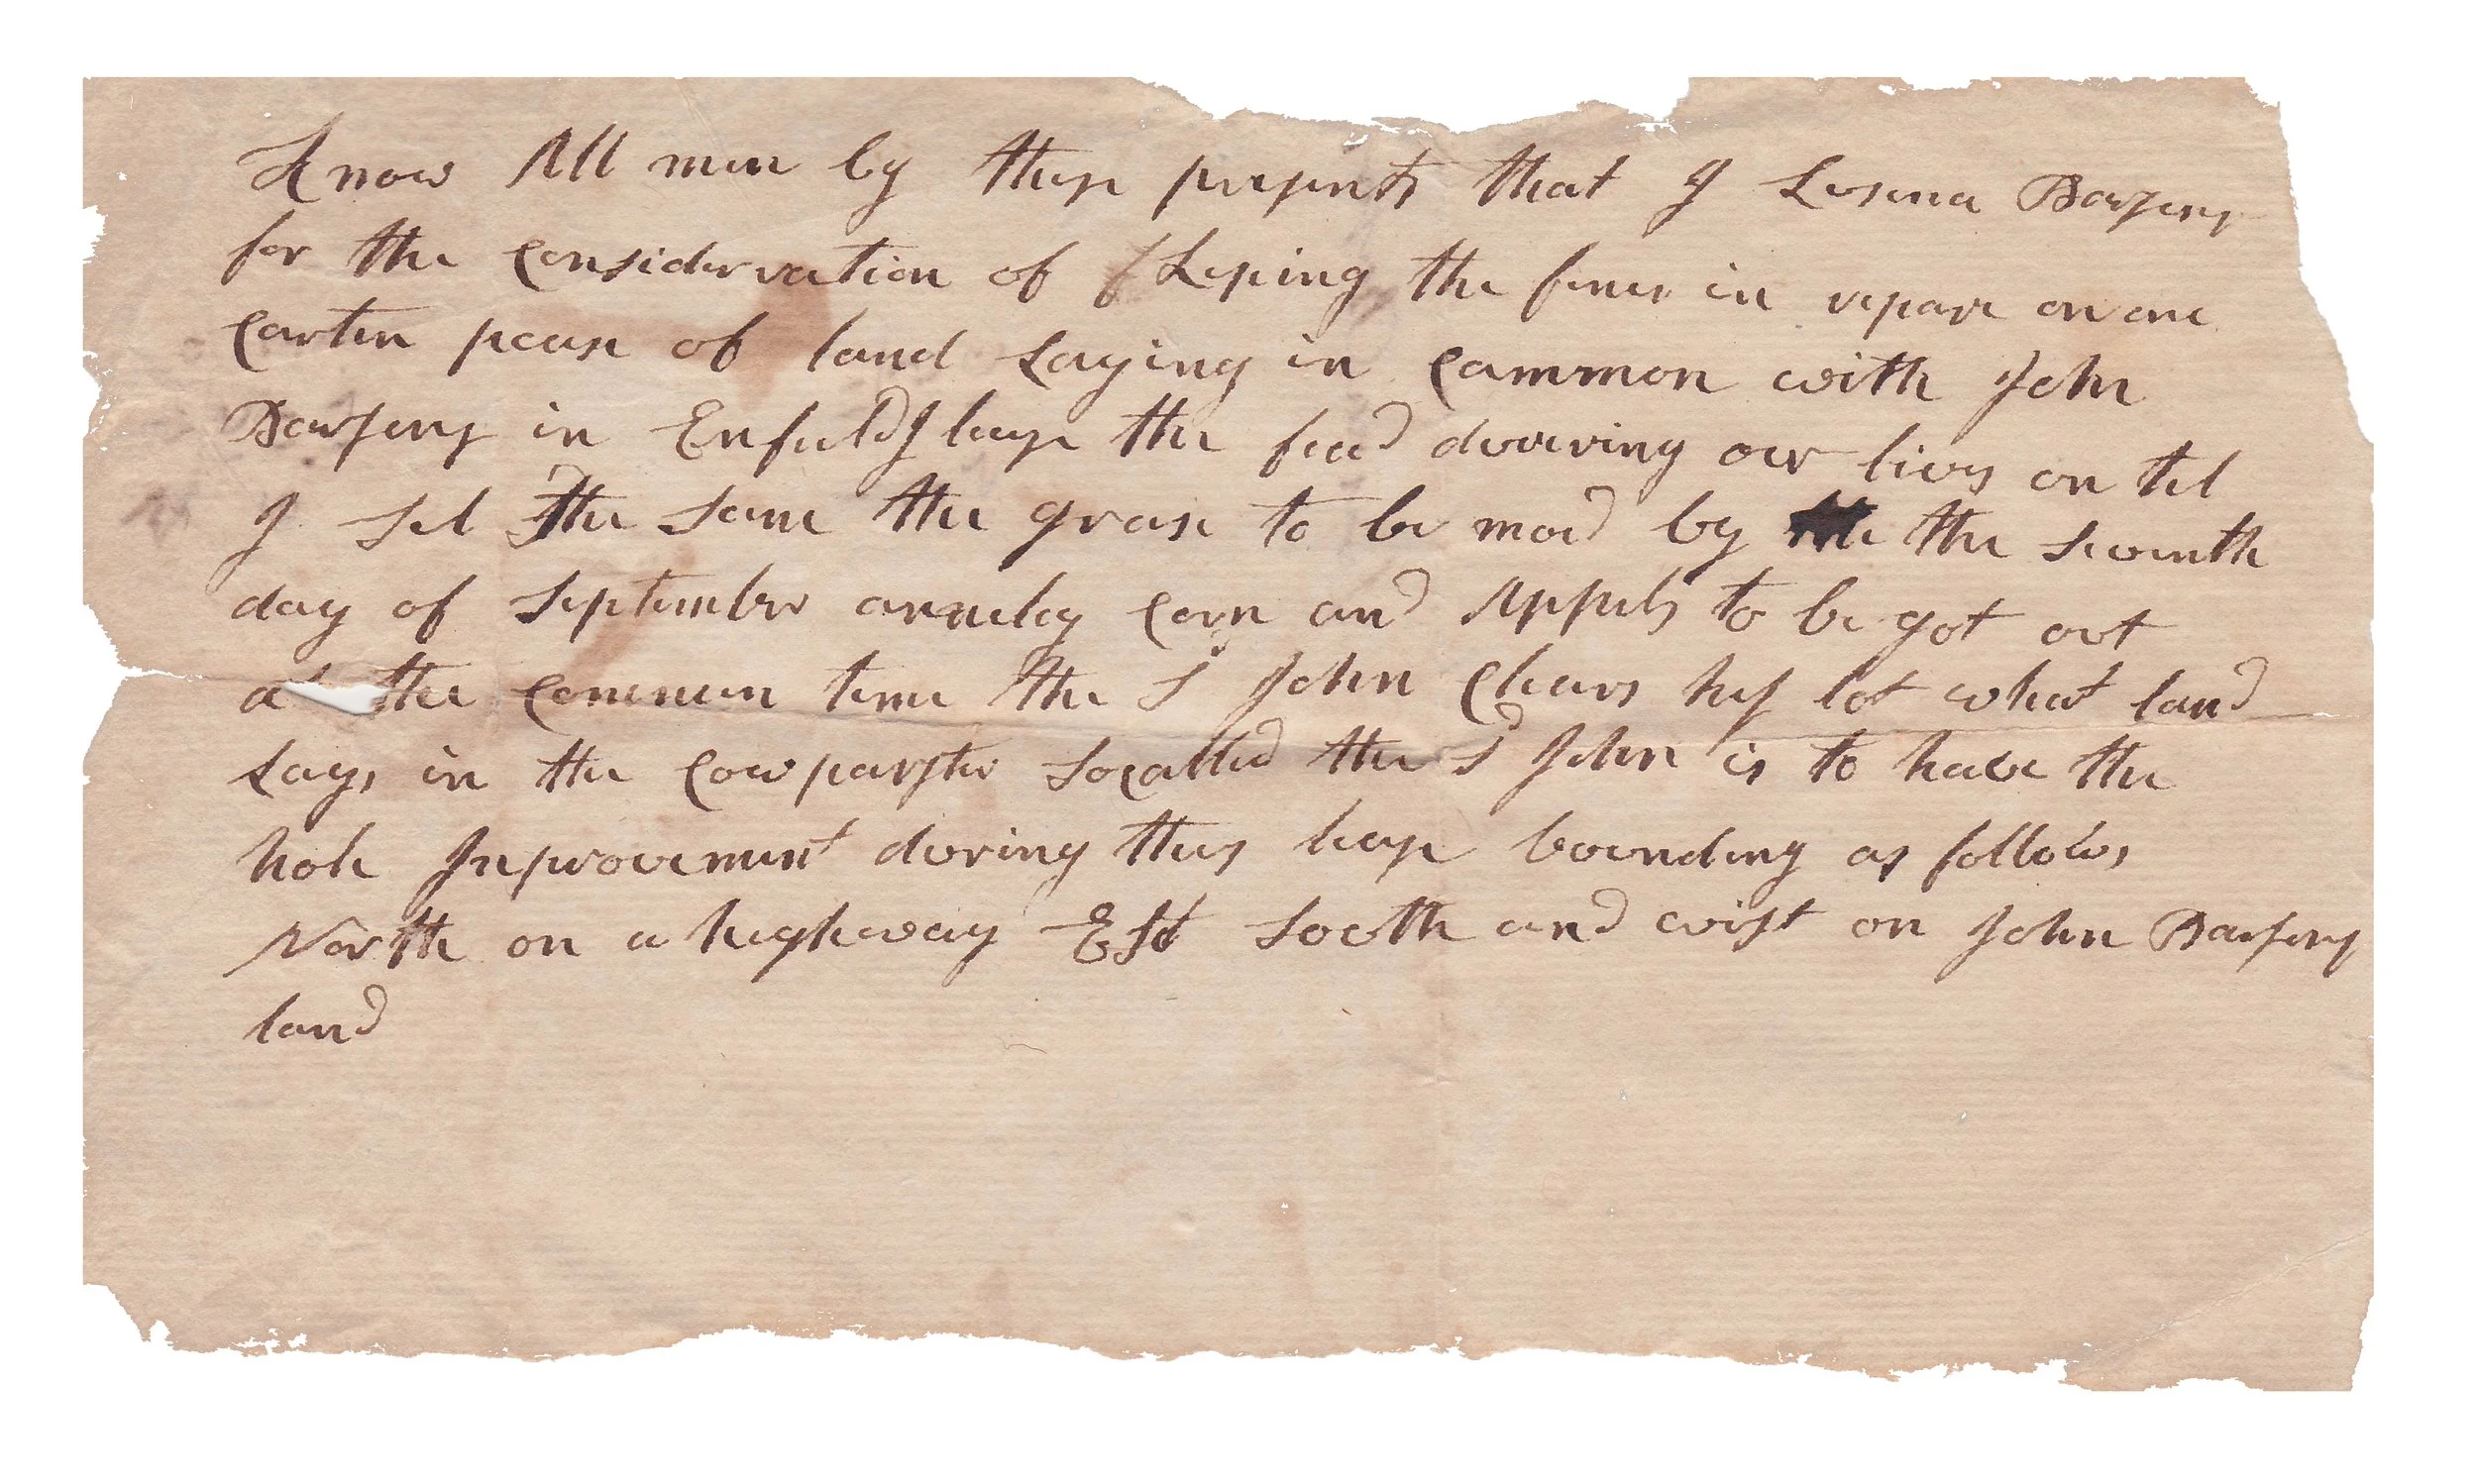 Know All men by these presents that I Lusina Parsons
for the Considerration of Keping the fenes in repare on one
Carten pease of land Laying in Common with John
Parsons in Enfield I lease the feed duuering our lives or tel
I Sel the Same the grase to be moed by the Seventh
day of September annuley Corn and Appels to be got out
at the Common teme the Sd John Clears his lot what land
Lays in the Cow paster So Called the Sd John is to have the
hole Inprovement during this lease bounding as follows
North on a highway Est South and wist on John Parsons
land